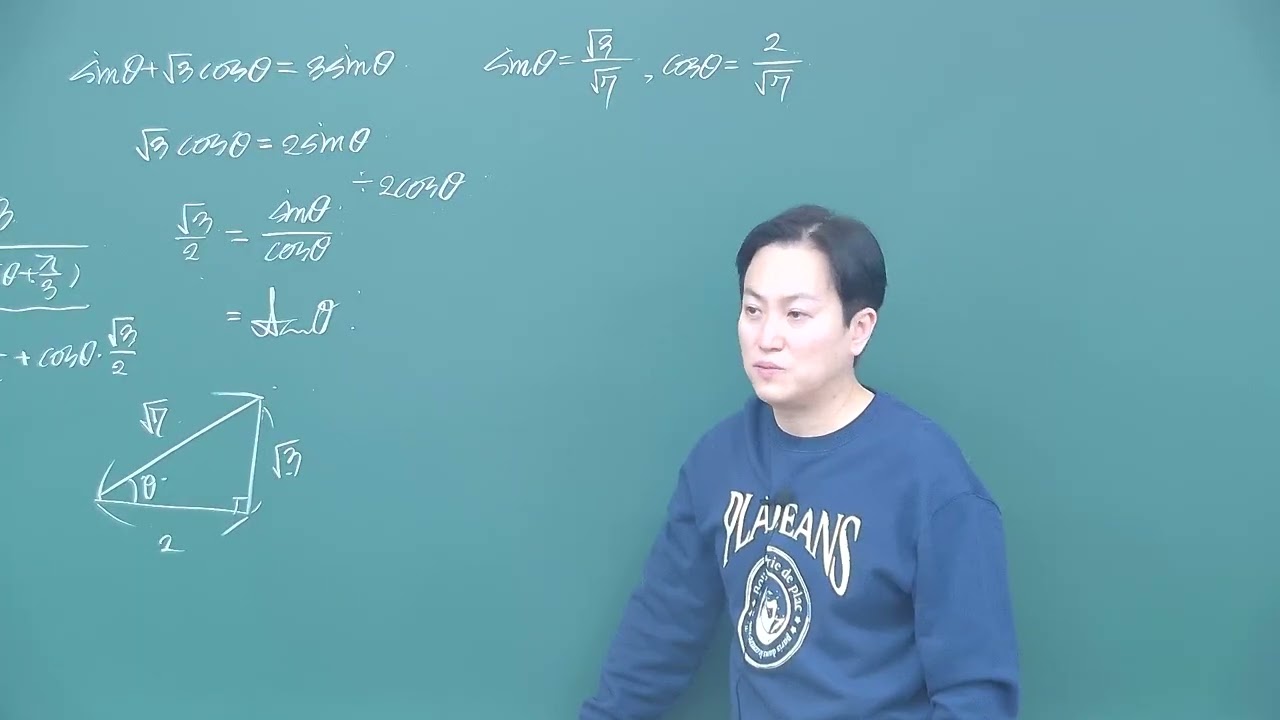 sinθ+√3 cosθ = 3sinθ
sinθ = √3/√7 , cosθ = 2/√7
√3 cosθ = 2sinθ
÷2cosθ
√3/2 = sinθ/cosθ
= tanθ
3
θ+π/3)
+ cosθ·√3/2
√7
√3
θ
2
PLAJEANS
de plac